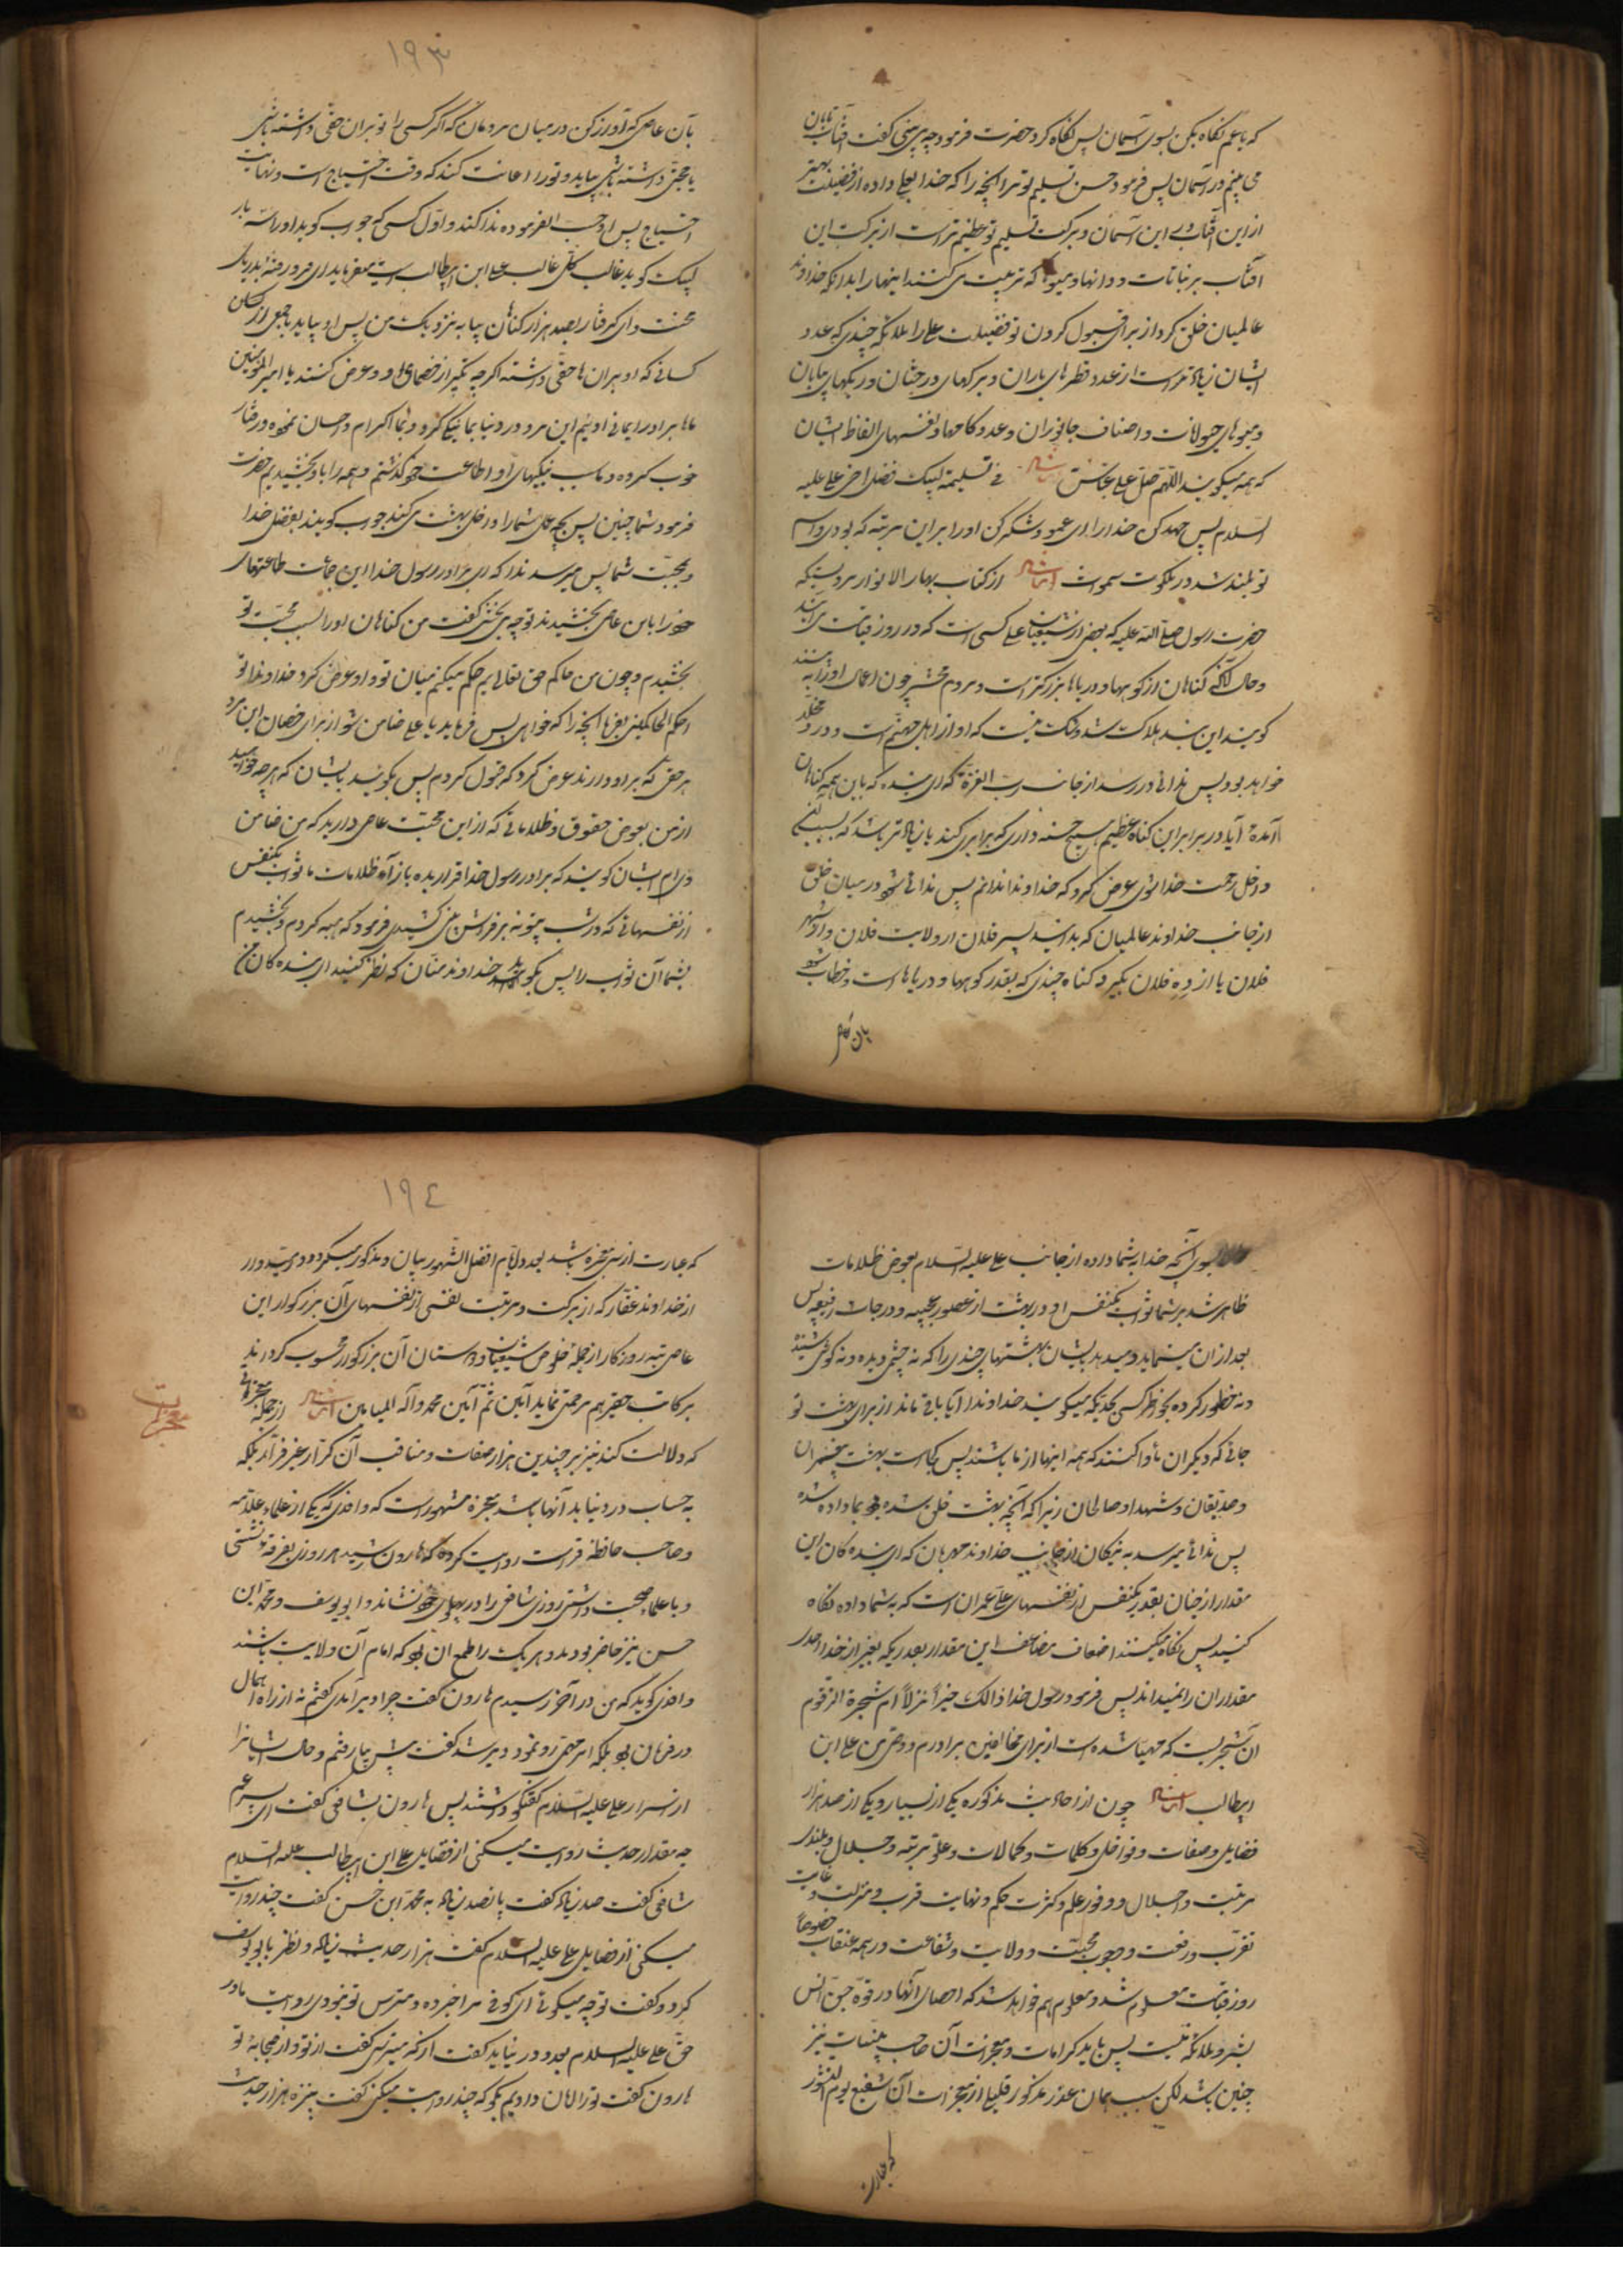 که یا عم نگاه بکن بسوی آسمان پس نگاه کرد حضرت فرمود چه می بینی گفت آفتاب تابان
می بینم در آسمان پس فرمود حسن تسلیم تو مر آنچه را که خدا بعلی داده از فضیلت بهتر
از این آفتاب و این آسمان و برکت تسلیم تو عظیم تر است از برکت این
آفتاب بر نباتات و دانها و میوها که تربیت می کنند اینهارا بدانکه خداوند
عالمیان خلق کرد از برای قبول کردن تو فضیلت علی را ملائکه چندی که عدد
ایشان زیاد تر است از عدد قطرهای باران و برکهای درختان و ریکهای بیابان
و میوهای حیوانات و اصناف جانوران و عدد کامها و نفسهای الفاظ ایشان
که همه میکویند اللهم صل علی فی تسلیمه لبیک فضل اخی علی علیه
السلام پس حمد کن خدا را ای عم و شکر کن او را بر این مرتبه که بودی و اسم
تو بلند شد در ملکوت سموات ایضا از کتاب بهار الانوار مرویست که
حضرت رسول صلی الله علیه که بعضی از شیعیان علی کسی است که در روز قیامت می آید
و حال آنکه گناهان از کوهها و دریاها بزرکتر است و مردم محشر چون اعمال او را به بینند
کویند این بنده هلاک شد و شک نیست که او از اهل جهنم است و در مخلد
خواهد بود پس ندائی در رسد از جانب رب العزة که ای بنده که باین همه کناهان
آمدهٔ آیا در برابر این کناه عظیم هیچ حسنه داری که برابری کند یا زیاد تر باشد که بسبب
داخل رحمت خدا شوی عرض کرد که خداوندا ندانم پس ندائی شود در میان خلق
از جانب خداوند عالمیان که بدانید پسر فلان از ولایت فلان و از شهر
فلان یا از ده فلان بگیرد گناه چندی که بقدر کوهها و دریاها است و خطاب شود
بآن عاصی
۱۹۳
بآن عاصی که آواز کن در میان مردمان که اگر کسی را تو بر آن حقی داشته باشی
یا محبتی داشته باشی بیاید و تو را اعانت کند که وقت احتیاج است و نهایت
احتیاج پس او حسب الفرموده ندا کند و اول کسی که جواب کوید او را سه بار
لبیک کوید غالب کل غالب علی ابن ابیطالب است میفرماید ای فرو رفتهٔ بدریای
محنت و ای گرفتار بصد هزار گناهان بیا به نزدیک من پس او بیاید با جمعی از کسان
کسانی که او بر آن ها حقی داشته اگر چه کمتر از خصمای او و عرض کنند یا امیر المؤمنین
ما برادر ایمانی اوئیم این مرد در دنیا بما نیکی کرد و بما اکرام و احسان نموده و رفتار
خوب کرده و ما بسبب نیکیهای او از طاعت خود گذشتم و همه را باو بخشیدیم حضرت
فرمود شما چنین پس بچه عمل شما را داخل بهشت می کند جواب کویند بفضل خدا
و محبت شما پس میرسد ندا که ای برادر رسول خدا این جماعت طاعتهای
خود را باین عاصی بخشیدند تو چه می بخشی گفت من کناهان او را بسبب محبت تو
بخشیدم و چون من حاکم حق تعالی ایم حکم میکنم میان تو و او عرض کرد خداوندا تو
احکم الحاکمینی بفرما آنچه را که خواهی پس فرماید یا علی ضامن شو از برای خصمان این مرد
هر حقی که بر او دارند عرض کرد که قبول کردم پس بکوید بایشان که هر چه خواهید
از من بعوض حقوق و ظلاماتی که از این محبت عاصی دارید که من ضامن
وی ام ایشان کویند که برادر رسول خدا قرار بده باز آء ظلامات ما ثواب یکنفس
از نفسهائی که در شب بیتوته بر فراش نبی کشیدی فرمود که هبه کردم و بخشیدم
بشما آن ثواب را پس بکوید خداوند منان که نظر کنید ای بنده کان من
بسوی آنچه خدا بشما داده از جانب علی علیه السلام بعوض ظلامات
ظاهر شد بر شما ثواب یکنفس او در بهشت از قصور عجیبه و درجات رفیعه پس
بعد از آن مینماید و میدهد بایشان بهشتهای چندی را که نه چشمی دیده و نه کوشی شنیده
و نه خطور کرده بخواطر کسی بحدیکه میکویند خداوندا آیا باقی ماند از برای بهشت تو
جائی که دیکران مأوا کنند که همه اینها از ما باشند پس کجاست بهشت پیغمبران
و صدیقان و شهدا و صالحان زیرا که آنچه بهشت خلق شده بود بما داده شده
پس ندائی میرسد به نیکان از جانب خداوند مهربان که ای بنده کان این
مقدار از جنان بقدر یکنفس از نفسهای علی عمران است که به شما داده نگاه
کنید پس نگاه میکنند اضعاف مضاعف این مقدار بعد ریکه بغیر از خدا احدی
مقدار آن را نمیداند پس فرمود رسول خدا ذالک خیراً نزلاً ام شجرة الزقوم
آن شجریست که مهیا شده است از برای مخالفین برادرم و وصی من علی ابن
ابیطالب ایضا چون از احادیث مذکوره یکی از بسیار و یکی از صد هزار
فضایل و صفات و نوافل و کلمات و کمالات و علو مرتبه و جلال و بلندی
مرتبت و اجلال و وفور علم و کثرت حکم و نهایت قرب و منزلت و غایت
تقرب و رفعت و وجوب محبت و ولایت و شفاعت در همه عقبات خصوصاً
روز قیامت معلوم شد و معلوم هم خواهد شد که احصای آنها در قوه جن و انس
بشر و ملائکه نیست پس باید کرامات و معجزات آن صاحب بینیات نیز
چنین باشد لکن بسبب همان عذر مذکور قلیلی از معجزات آن شفیع یوم النشور
که عبارت
۱۹٤
که عبارت از سی معجزه باشد بعدد ایام افضل الشهور بیان و مذکور میکردد و امیدوار
از خداوند غفار که از برکت و مرتبت نفسی از نفسهای آن بزرکوار این
عاصی تبه روزکار از جمله خلوص شیعیان و دوستان آن بزرکوار محسوب کرداند
برکات حقیر هم مرحمت نماید آمین ثم آمین محمد و آله المیامین ایضا از جمله معجزاتی
معجزات
که دلالت کند نیز بر چندین هزار صفات و مناقب آن کرار غیر فرار بلکه
به حساب در دنیا بد آنها باشد معجزه مشهور است که واقدی که یکی از علماء علامه
و صاحب حافظه قرات روایت کرده که هارون رشید هر روزی بغرفه نشستی
و با علماء صحبت داشتی روزی شافعی را در پهلوی خود نشاند و ابو یوسف و محمد ابن
حسن نیز حاضر بودند و هر یک را طمع آن بود که امام آن ولایت باشند
واقدی کوید که من در آخر رسیدم هارون گفت چرا دیر آمدی گفتم نه از راه اهمال
در فرمان بود بلکه امر مهمی رو نمود دیر شد گفت پیش بیا رفتم و حال ایشانرا
از اسرار علی علیه السلام گفتگو داشتند پس هارون بشافعی گفت ای پسر عم
چه مقدار حدیث روایت میکنی از فضایل علی ابن ابیطالب علیه السلام
شافعی گفت صد زیاد گفت پانصد زیاد به محمد ابن حسن گفت چند روایت
میکنی از فضایل علی علیه السلام گفت هزار حدیث زیاد و نظر بابو یوسف
کرد و گفت تو چه میکوئی ای کوفی مرا خبر ده و مترس تو بخودی روایت ما در
حق علی علیه السلام بعدد در نیاید گفت از که میترسی گفت از تو و از صحابهٔ تو
هارون گفت تو را امان دادیم بکو که چند روایت میکنی گفت پانزده هزار حدیث